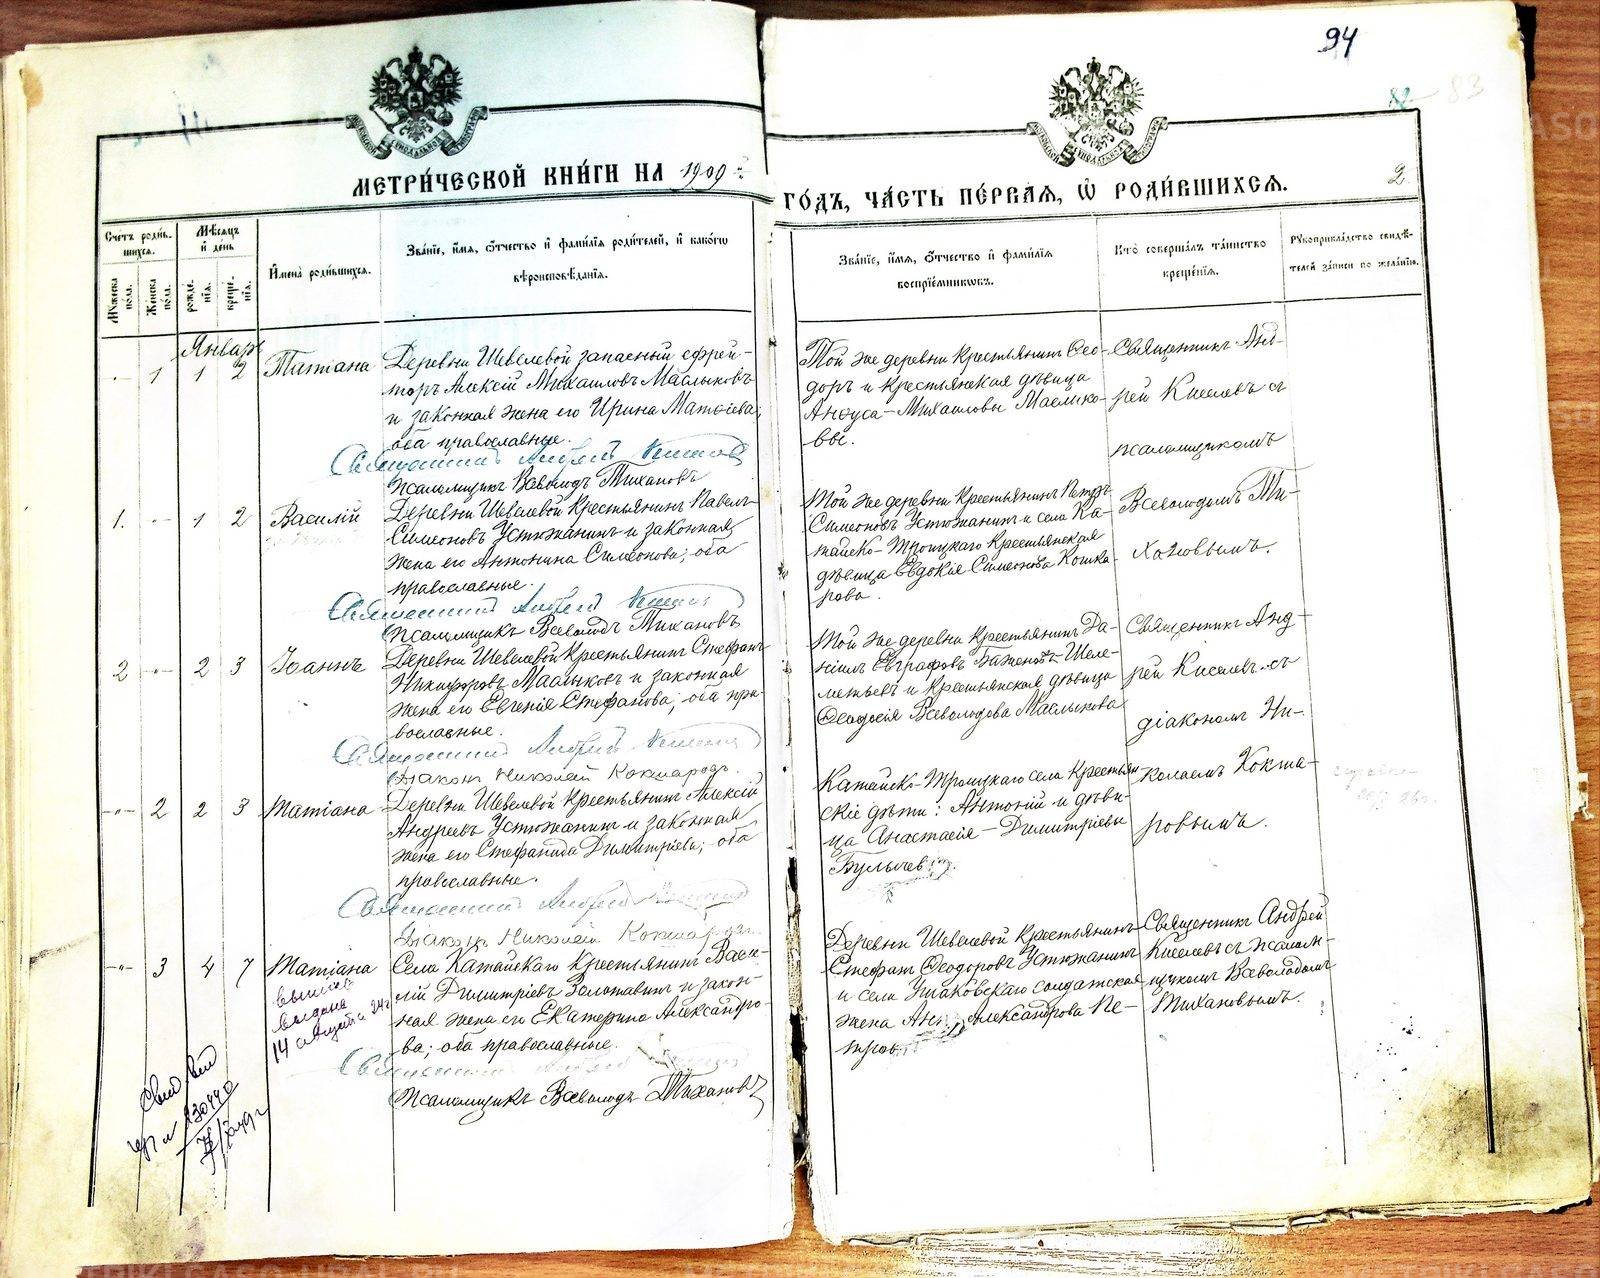 94
82 83
МЕТРИ́ЧЕСКОЙ КНИ́ГИ НА 1909 й
ГО́ДЪ, ЧА́СТЬ ПЕ́РВАЯ, Ѽ РОДИ́ВШИХСЯ.
2.
Сче́тъ роди́в-
шихся.
Мѣ́сяцъ
и҆ де́нь
Му́жеска
по́ла.
Же́нска
по́ла.
рожде́-
нїя.
креще́-
нїя.
И҆мена̀ роди́вшихся.
Зва́нїе, и҆́мя, ѻ҆́тчество и҆ фами́лїя роди́телей, и҆ како́гѡ
вѣроисповѣ́данїя.
Зва́нїе, и҆́мя, ѻ҆́тчество и҆ фами́лїя
воспрїе́мникѡвъ.
Кто̀ соверша́лъ та́инство
креще́нїя.
Рукоприкла́дство свидѣ́-
телей за́писи по жела́нїю.
Январь
1 1 2 Татіана
Деревни Шевелевой запасный ефрей-
торъ Алексій Михаиловъ Маслыковъ
и законная жена его Ирина Матѳіева;
оба православные.
Священникъ Андрей Киселевъ
Псаломщикъ Всеволодъ Тихановъ
Той же деревни крестьянинъ Ѳео-
доръ и крестьянская дѣвица
Анѳуса - Михаиловы Маслыко-
вы.
Священникъ Анд-
рей Киселевъ съ
псаломщикомъ
1. 1 2 Василій
Деревни Шевелевой крестьянинъ Павелъ
Симеоновъ Устюжанинъ и законная
жена его Антонина Симеонова; оба
православные.
Священникъ Андрей Киселевъ
Псаломщикъ Всеволодъ Тихановъ
Той же деревни крестьянинъ Петръ
Симеоновъ Устюжанинъ и села Ка-
тайско-Троицкаго крестьянская
дѣвица Евдокія Симеонова Кошка-
рова.
Всеволодомъ Ти-
хановымъ.
2 2 3 Іоаннъ
Деревни Шевелевой крестьянинъ Стефанъ
Никифоровъ Маслыковъ и законная
жена его Евгенія Стефанова; оба пра-
вославные.
Священникъ Андрей Киселевъ
Діаконъ Николай Кокшаровъ.
Той же деревни крестьянинъ Да-
ніилъ Евграфовъ Баженовъ-Шеле-
метьевъ и крестьянская дѣвица
Ѳеодосія Всеволодова Маслыкова
Священникъ Анд-
рей Киселевъ съ
діакономъ Ни-
2 2 3 Татіана
Деревни Шевелевой крестьянинъ Алексій
Андреевъ Устюжанинъ и законная
жена его Стефанида Димитріева; оба
православные.
Священникъ Андрей Киселевъ
Діаконъ Николай Кокшаровъ
Катайско-Троицкаго села крестьян
скіе дѣти: Антоній и дѣви-
ца Анастасія - Димитріевы
Булычевы.
колаемъ Кокша-
ровымъ.
3 4 7 Татіана
Села Катайскаго крестьянинъ Васи-
лій Димитріевъ Золотавинъ и закон-
ная жена его Екатерина Александро-
ва; оба православные.
Священникъ
Псаломщикъ Всеволодъ Тихановъ
Деревни Шевелевой крестьянинъ
Стефанъ Ѳеодоровъ Устюжанинъ
и села Ушаковскаго солдатская
жена Анна Александрова Пе-
трова
Священникъ Андрей
Киселевъ съ псалом-
щикомъ Всеволодомъ
Тихановымъ.
выдана
14 августа 24 г